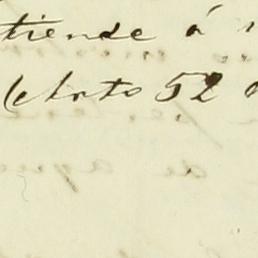 tiende á
(Arto 52